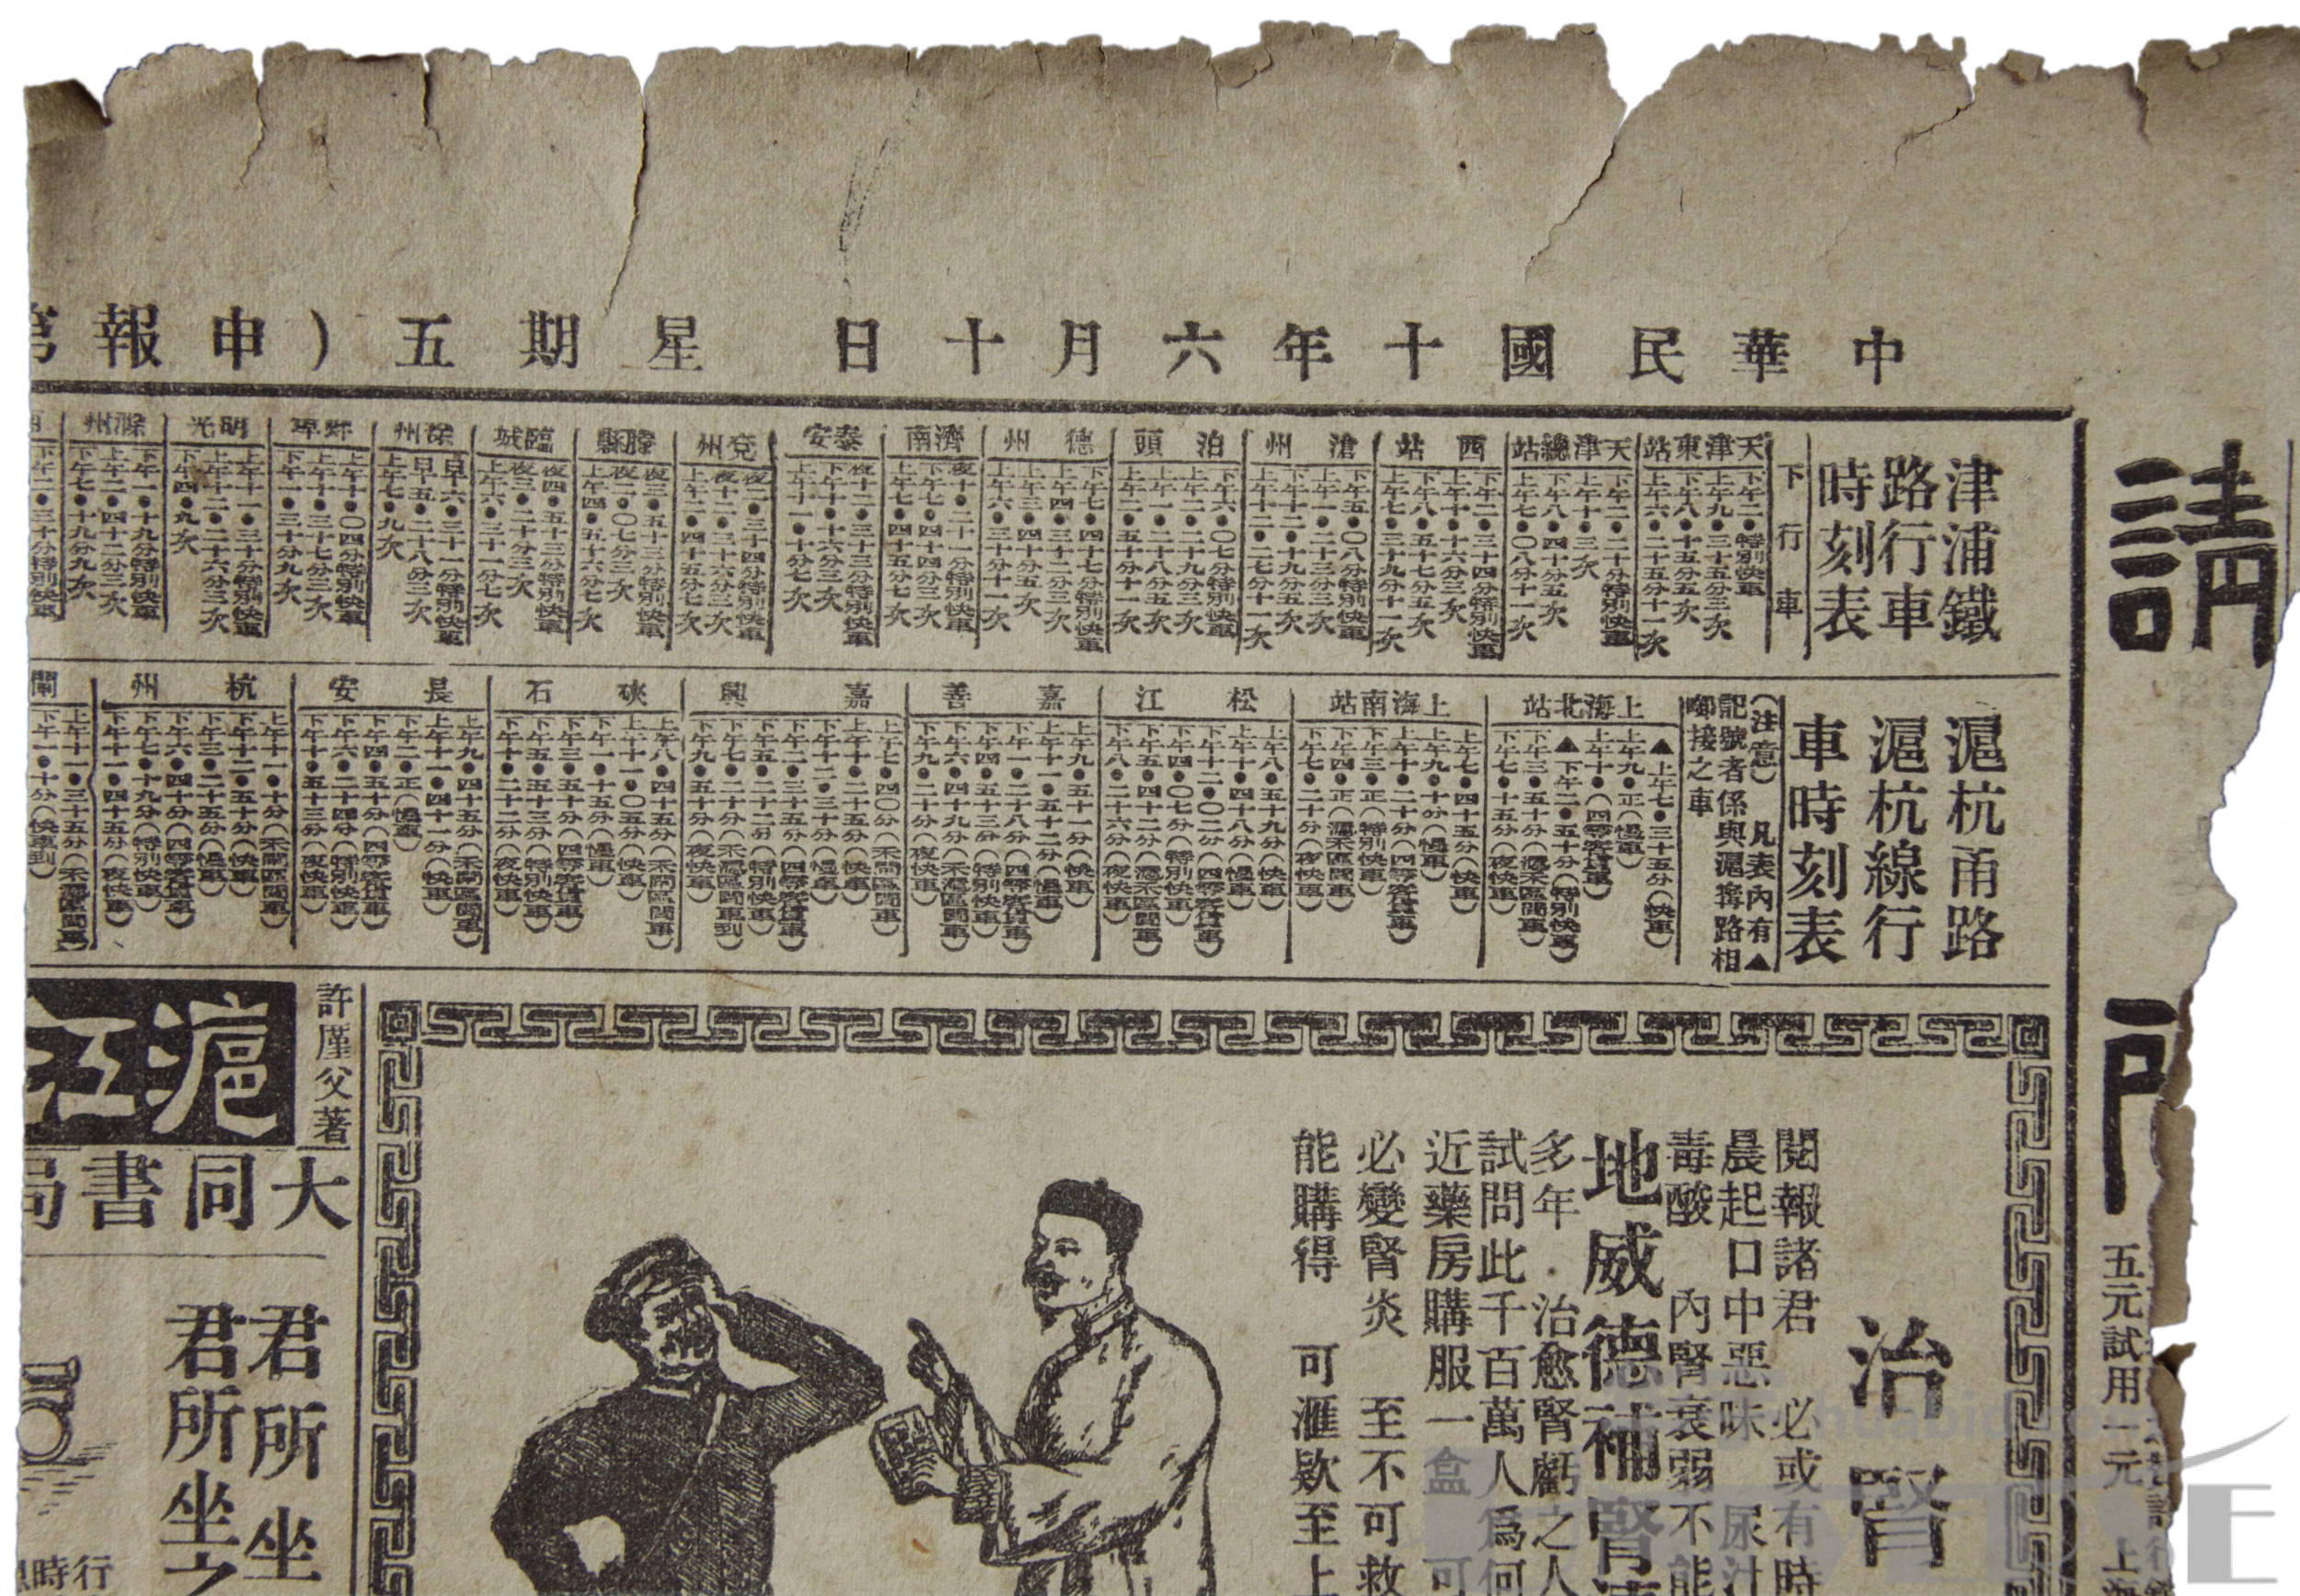 中華民國十年六月十日　星期五（申報
津浦鐵
路行車
時刻表
下行車
天津東站
下午二●特別快車
上午九●三十五分三次
下午八●十五分五次
上午六●二十五分十一次
天津總站
下午二●二十分特別快車
上午十●三次
下午八●四十分五次
上午七●〇八分十一次
西站
下午二●三十四分特別快車
上午十●十六分三次
下午八●五十七分五次
上午七●三十九分十一次
滄州
下午五●〇八分特別快車
上午一●二十三分三次
下午十二●十九分五次
上午十二●二七分十一次
泊頭
下午六●〇七分特別快車
上午二●二十九分三次
上午一●二十八分五次
下午二●五十分十一次
德州
下午七●四十七分特別快車
上午四●三十二分三次
上午三●四十分五次
上午六●三十分十一次
濟南
夜十●二十一分特別快車
下午七●四十四分三次
上午七●四十五分七次
泰安
夜十二●三十三分特別快車
下午十●十六分三次
上午十一●十分七次
兗州
夜二●三十四分特別快車
夜十二●三十六分三次
上午二●四十五分七次
滕縣
夜三●五十三分特別快車
夜二●〇七分三次
上午四●五十六分七次
臨城
夜四●五十三分特別快車
夜三●二十分三次
上午六●三十一分七次
徐州
早六●三十一分特別快車
早五●二十八分三次
上午七●九次
蚌埠
上午十●〇四分特別快車
上午十●三十七分三次
下午一●三十分九次
明光
上午十一●三十分特別快車
上午十二●二十六分三次
下午四●九次
滁州
下午一●十九分特別快車
上午二●四十二分三次
下午七●十九分九次
下午二●三十分特別快車
滬杭甬路
滬杭線行
車時刻表
（注意）凡表內有▲
記號者係與滬寗路相
啣接之車
上海北站
▲上午七●三十五分（快車）
上午九●正（慢車）
上午十●（四等客貨車）
▲下午二●五十分（特別快車）
下午三●五十分（滬禾區間車）
下午七●十五分（夜快車）
上海南站
上午七●四十五分（快車）
上午九●十分（慢車）
上午十●二十分（四等客貨車）
下午三●正（特別快車）
下午四●正（滬禾區間車）
下午七●二十分（夜快車）
松江
上午八●五十九分（快車）
上午十●四十八分（慢車）
下午十二●〇二分（四等客貨車）
下午四●〇七分（特別快車）
下午五●四十二分（滬禾區間車）
下午八●二十六分（夜快車）
嘉善
上午九●五十一分（快車）
上午十一●五十二分（慢車）
下午一●二十八分（四等客貨車）
下午四●五十三分（特別快車）
下午六●四十九分（禾滬區間車）
下午九●二十分（夜快車）
嘉興
上午七●四〇分（禾閘區間車）
上午十●二十五分（快車）
下午十二●三十分（慢車）
下午二●三十五分（四等客貨車）
下午五●二十二分（特別快車）
下午七●二十分（禾滬區間車到）
下午九●五十分（夜快車）
硤石
上午八●四十五分（禾閘區間車）
上午十一●〇五分（快車）
下午一●十五分（慢車）
下午三●五十分（四等客貨車）
下午五●五十三分（特別快車）
下午十●二十二分（夜快車）
長安
上午九●四十五分（禾閘區間車）
上午十一●四十一分（快車）
下午二●正（慢車）
下午四●五十分（四等客貨車）
下午六●二十四分（特別快車）
下午十●五十三分（夜快車）
杭州
上午十一●十分（禾閘區間車）
下午十二●五十分（快車）
下午三●二十五分（慢車）
下午六●四十分（四等客貨車）
下午七●十九分（特別快車）
下午十一●四十五分（夜快車）
閘
上午十一●三十五分（禾滬區間車）
下午一●十分（快車到）
請
五元試用一元
治腎
閱報諸君　必或有時
晨起口中惡味　尿汁
毒酸　內腎衰弱不能
地威德補腎
多年　治愈腎虧之人
試問此千百萬人爲何
近藥房購服一盒　可
必變腎炎　至不可救
能購得　可滙欵至上
許廑父著
滬江
大同書局
君所坐
君所坐之
行時